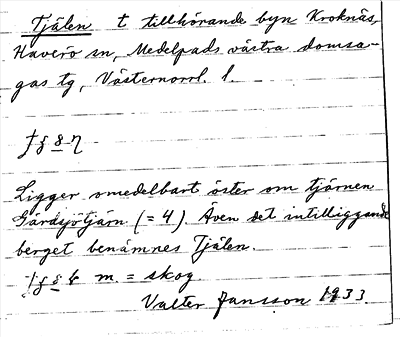 Tjälen t tillhörande byn Kroknäs,
Haverö sn, Medelpads västra domsa-
gas tg, Västernorrl. l.
Ligger omedelbart öster om tjärnen
Gårdsjötjärn (= 4). Även det intilliggande
berget benämnes Tjälen.
m. = skog
Valter Jansson 1933